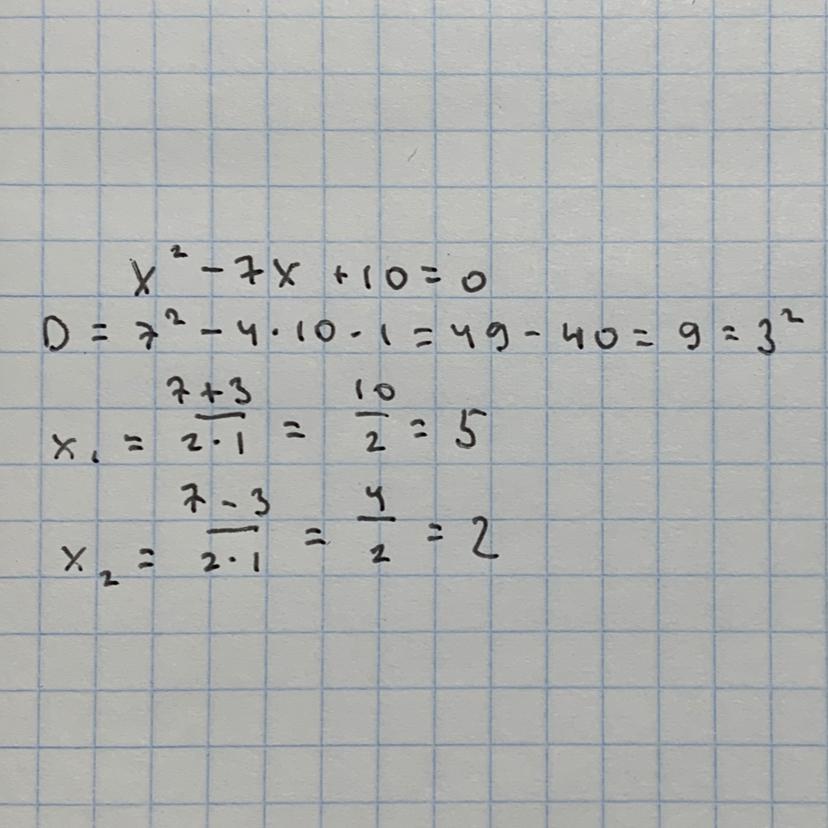 x² - 7x + 10 = 0
D = 7² - 4 · 10 · 1 = 49 - 40 = 9 = 3²
x₁ = (7 + 3)/(2 · 1) = 10/2 = 5
x₂ = (7 - 3)/(2 · 1) = 4/2 = 2